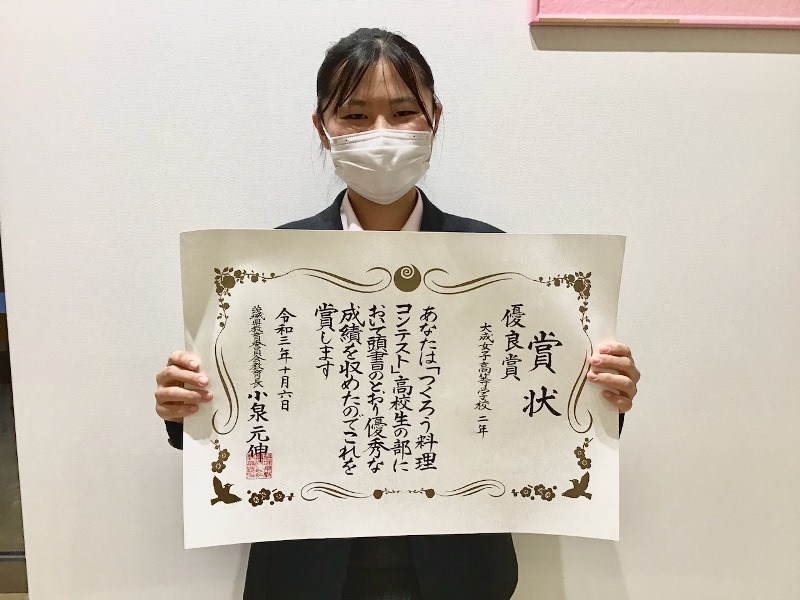 賞状
優良賞
大成女子高等学校 二年
あなたは「つくろう料理
コンテスト」高校生の部に
おいて頭書のとおり優秀な
成績を収めたのでこれを
賞します
令和三年十月六日
茨城県教育委員会教育長 小泉元伸